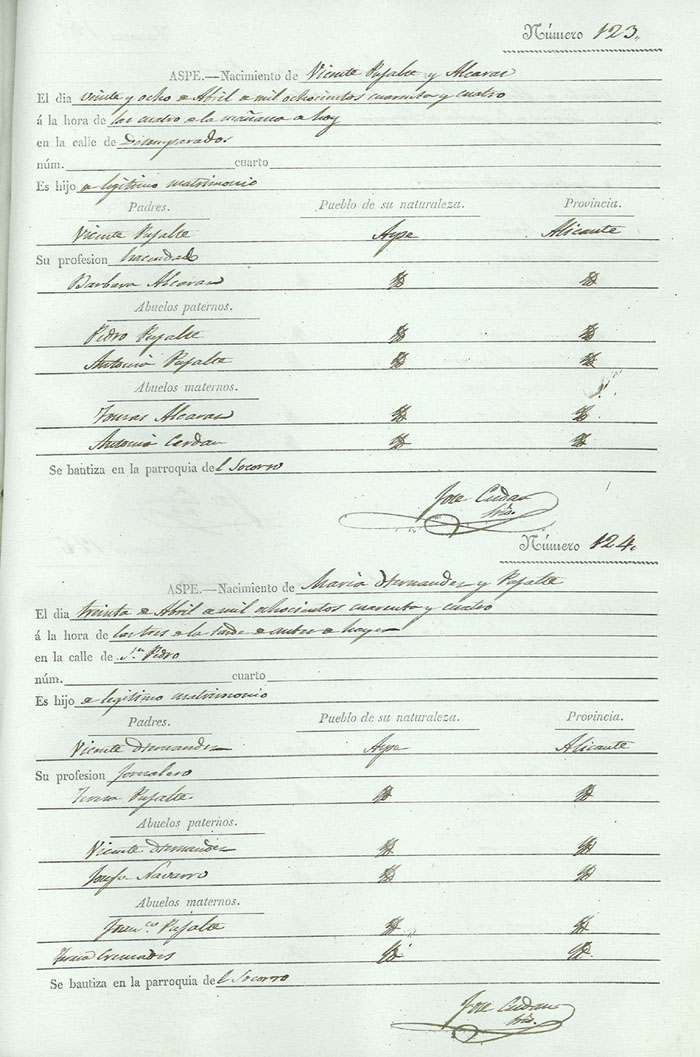 Número 123.
ASPE.—Nacimiento de Vicente Pujalte y Alcaras
El dia veinte y ocho de Abril de mil ochocientos cuarenta y cuatro
á la hora de las cuatro de la mañana de hoy
en la calle de Desamparados
núm. cuarto
Es hijo de legitimo matrimonio
Padres. Pueblo de su naturaleza. Provincia.
Vicente Pujalte Aspe Alicante
Su profesion hacendado
Barbara Alcaras
Abuelos paternos.
Pedro Pujalte
Antonia Pujalte
Abuelos maternos.
Tomas Alcaras
Antonia Cerdan
Se bautiza en la parroquia del Socorro
Jose
Número 124.
ASPE.—Nacimiento de Maria Hernandez y Pujalte
El dia treinta de Abril de mil ochocientos cuarenta y cuatro
á la hora de las tres de la tarde de antes de hayer
en la calle de Sn Pedro
núm. cuarto
Es hijo de legitimo matrimonio
Padres. Pueblo de su naturaleza. Provincia.
Vicente Hernandez Aspe Alicante
Su profesion Jornalero
Teresa Pujalte
Abuelos paternos.
Vicente Hernandez
Josefa Navarro
Abuelos maternos.
Franco Pujalte
Teresa Cremades
Se bautiza en la parroquia del Socorro
Jose